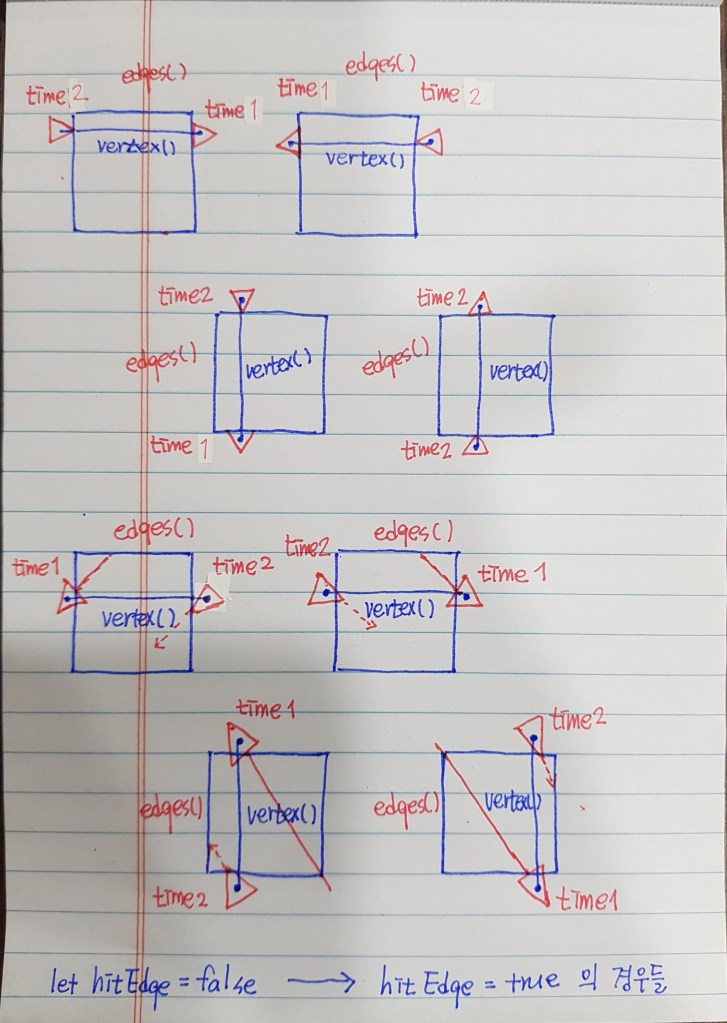 edges() edges()
time 2 time 1 time 1 time 2
vertex() vertex()
time2 time2
edges() vertex() edges() vertex()
time 1 time2
edges() edges()
time1 time2 time2 time 1
vertex() vertex()
time1 time2
edges() vertex() edges() vertex()
time2 time1
let hitEdge = false → hitEdge = true 의 경우들